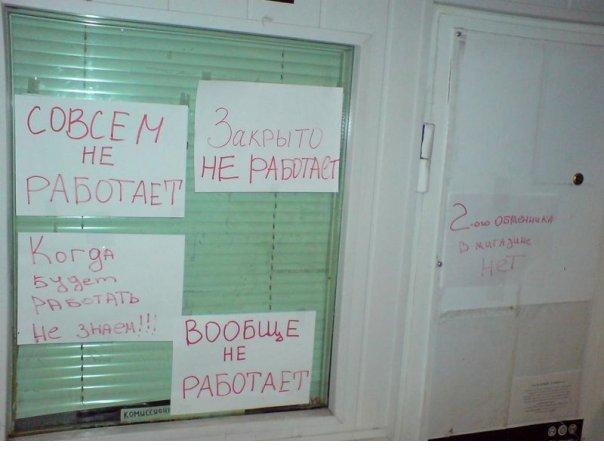 СОВСЕМ
НЕ
РАБОТАЕТ
Закрыто
НЕ РАБОТАЕТ
Когда
будет
РАБОТАТЬ
Не знаем!!!
ВООБЩЕ
НЕ
РАБОТАЕТ
2-ого обменника
в магазине
НЕТ